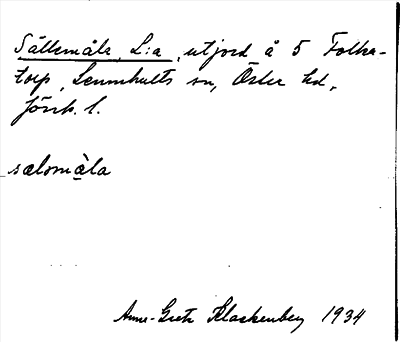 Sällsmåla, L:a, utjord å 5 Folka-
torp, Lemnhults sn, Östra hd,
Jönk. l.
sælsmåla
Anna-Greta Klackenberg 1934